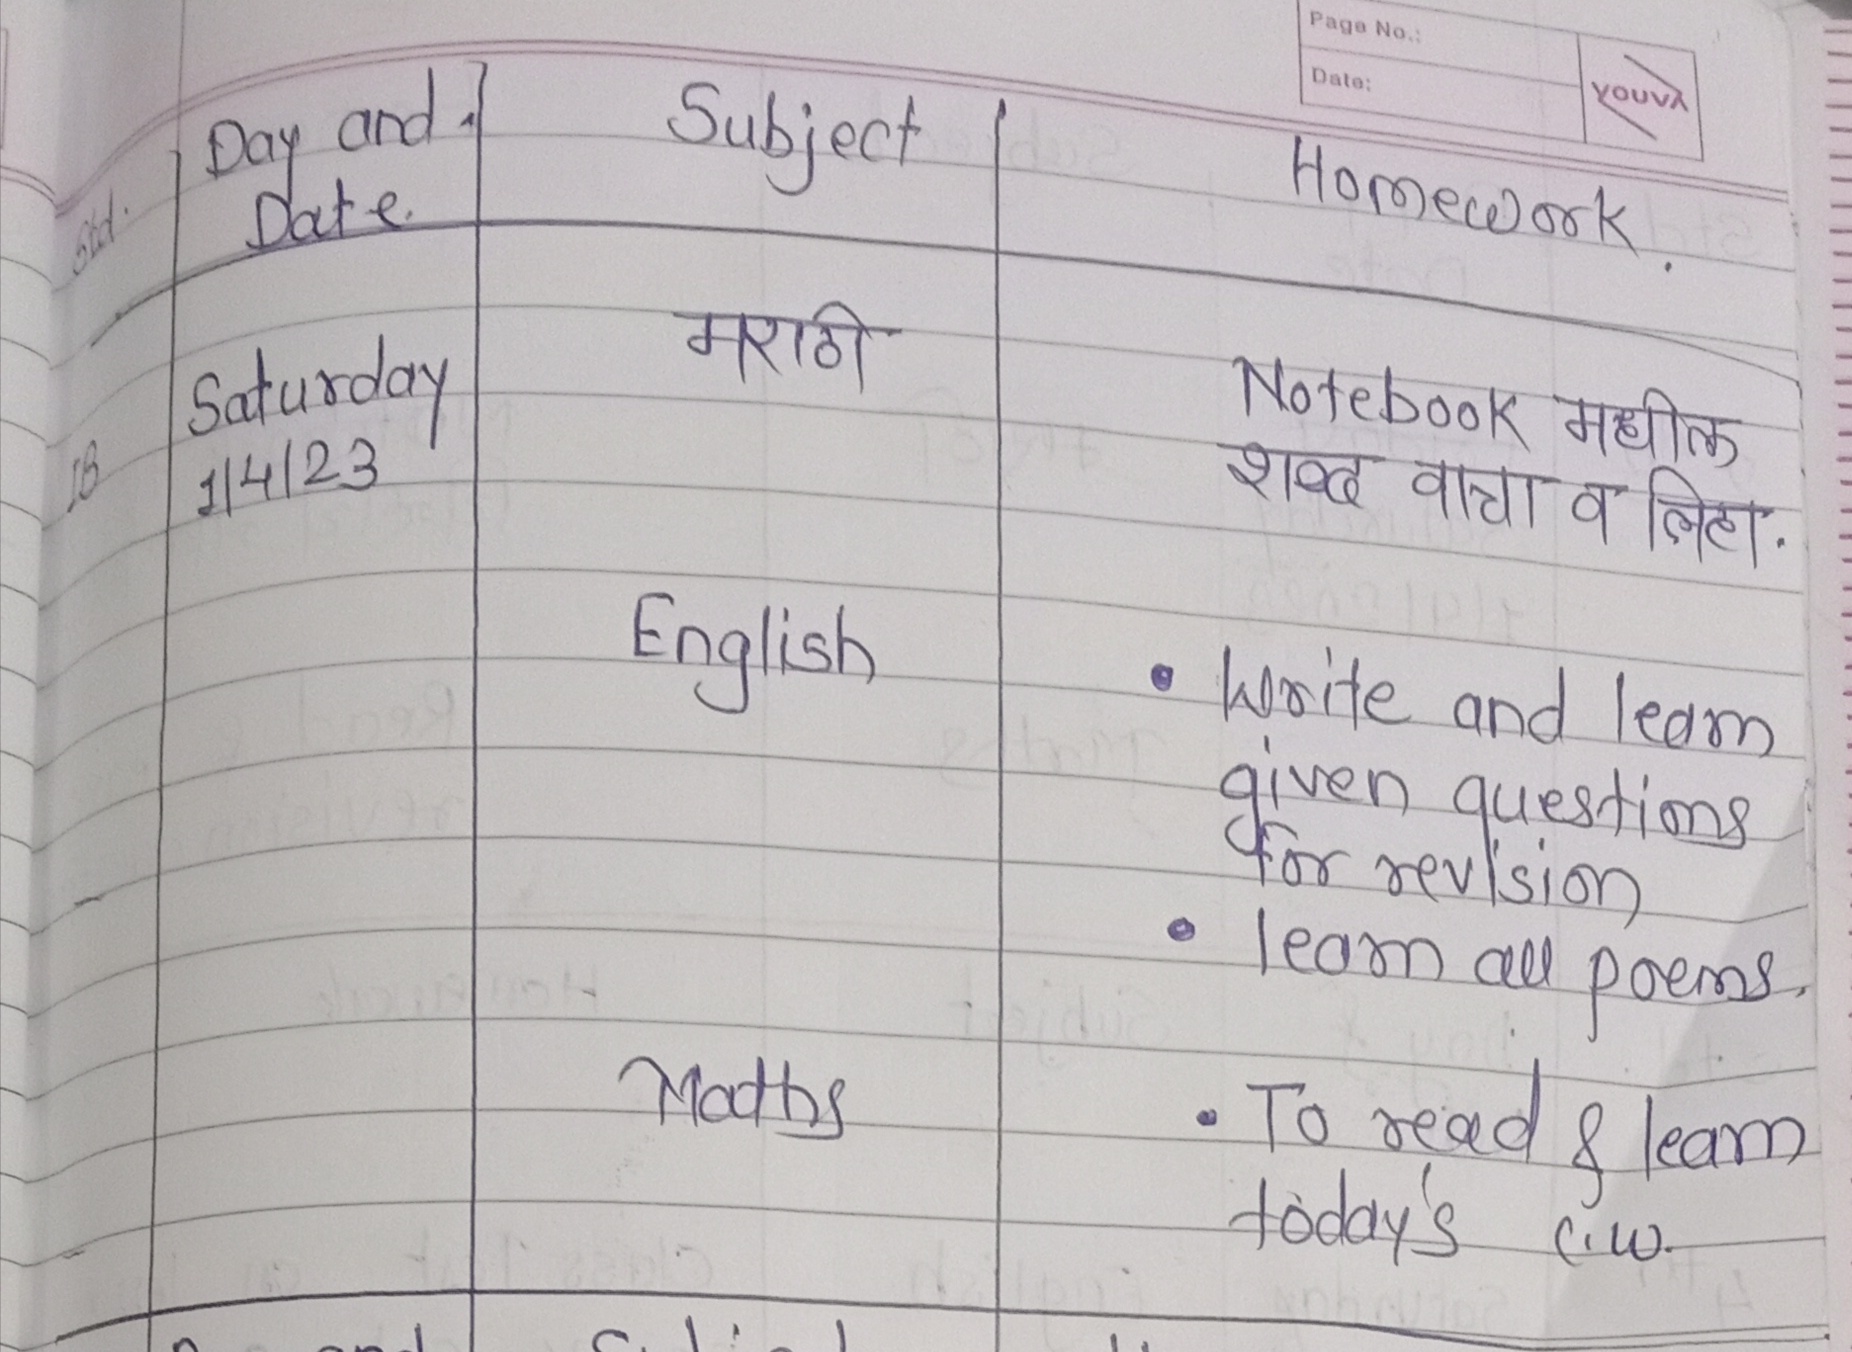 Page No.:
Date:
YOUVA
Std. Day and Subject Homework.
Date.
1B Saturday मराठी Notebook मधील
1/4/23 शब्द वाचा व लिहा.
English • Write and learn
given questions
for revision
• learn all poems.
Maths • To read & learn
today's C.W.